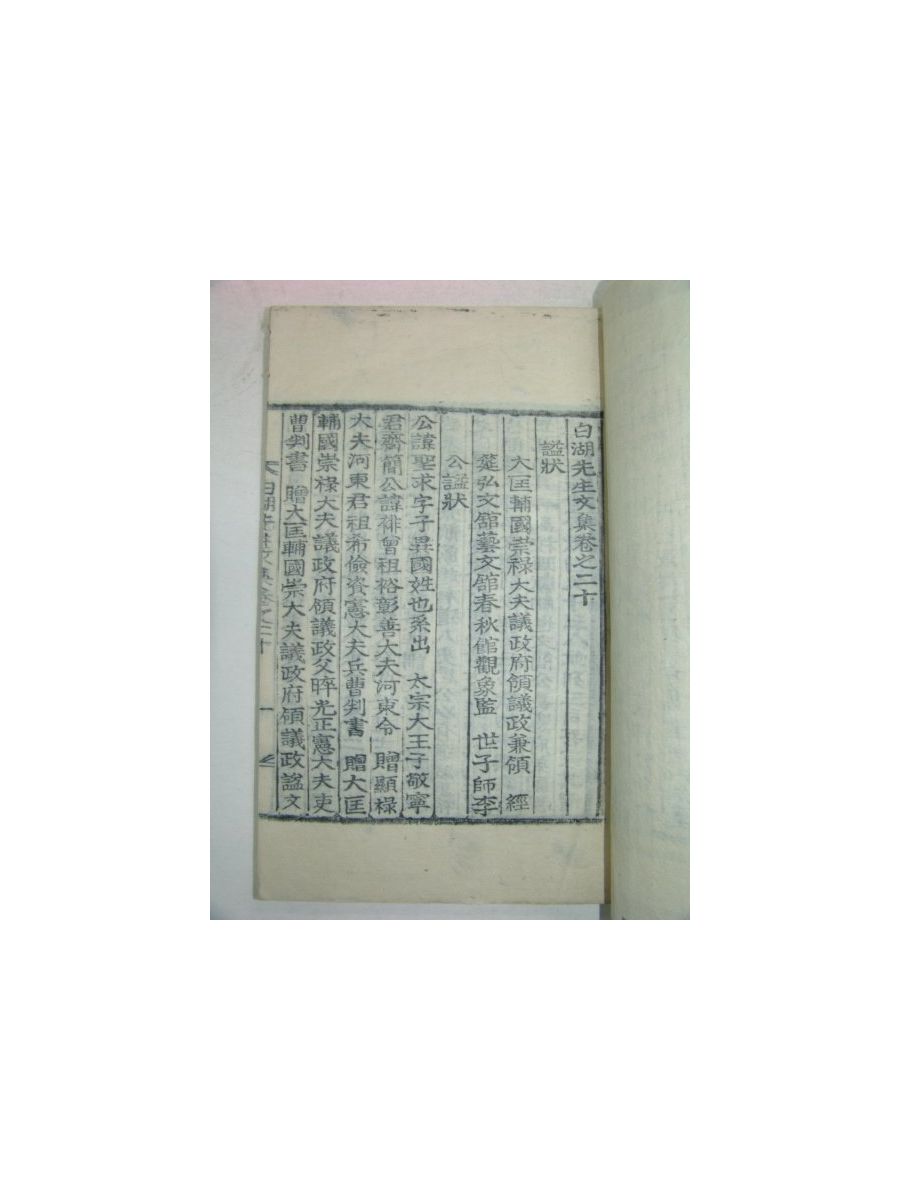 白湖先生文集卷之二十
謚狀
大匡輔國崇祿大夫議政府領議政兼領 經
筵弘文館藝文館春秋館觀象監 世子師李
公謚狀
公諱聖求字子異國姓也系出 太宗大王子敬寧
君齊簡公諱裶曾祖裕彰善大夫河東令 贈顯祿
大夫河東君祖希儉資憲大夫兵曹判書 贈大匡
輔國崇祿大夫議政府領議政父晬光正憲大夫吏
曹判書 贈大匡輔國崇大夫議政府領議政謚文
白湖先生文集卷之二十 一